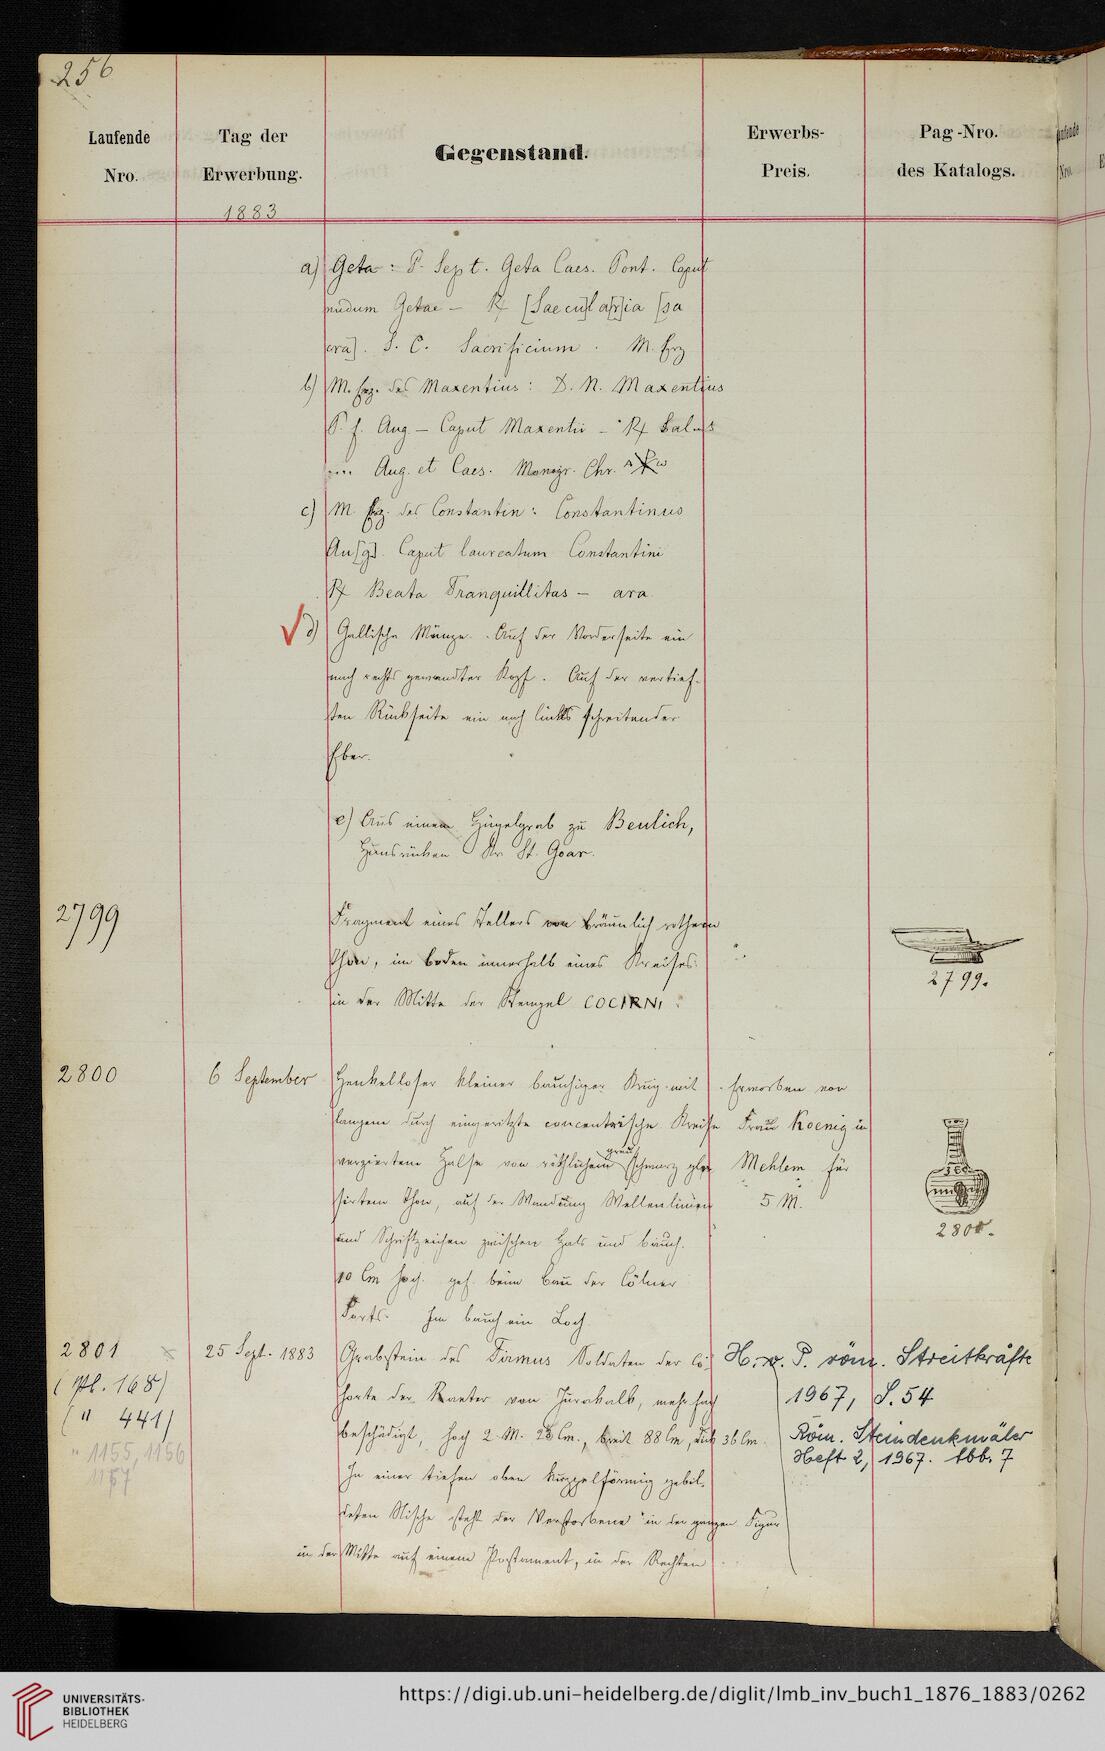 256
Laufende Nro.
Tag der Erwerbung.
Gegenstand.
Erwerbs-Preis.
Pag-Nro. des Katalogs.
1883
a) Geta: P. Sept. Geta Caes. Pont. Caput
nudum Getae – R [Saecu]la[r]ia [sa
cra]. S. C. Sacrificium. M. Erz
b) M. Erz. des Maxentius: D. N. Maxentius
P. f. Aug – Caput Maxentii – R Salus
Aug. et Caes. Monogr. Chr.
c) M. Erz. des Constantin: Constantinus
Au[g]. Caput laureatum Constantini
R Beata Tranquillitas – ara
d) Gallische Münze. Auf der Vorderseite ein
nach rechts gewandter Kopf. Auf der vertief-
ten Rückseite ein nach links schreitender
Eber.
e) Aus einem Hügelgrab zu Beulich,
Hunsrücken Kr. St. Goar.
2799
Fragment eines Tellers von bräunlich rothem
Thon, im Boden innerhalb eines Kreises
in der Mitte der Stempel COCIRNI
2799.
2800
6 September
Henkelloser kleiner bauchiger Krug mit
langem durch eingeritzte concentrische Kreise
verziertem Halse von röthlichem grau schwarz gla-
sirtem Thon, auf der Wandung Wellenlinien
und Schriftzeichen zwischen Hals und Bauch.
10 Cm hoch. gef. beim Bau der Cölner
Forts. Im Bauch ein Loch
Erworben von
Frau Koenig in
Mehlem für
5 M.
2800.
2801
(Pl. 168)
(" 441)
" 1155, 1156
1157
25 Sept. 1883
Grabstein des Firmus Soldaten der Co-
horte der Raeter von Jurakalk, mehrfach
beschädigt, hoch 2 M. 23 Cm., breit 88 Cm, dick 36 Cm.
In einer tiefen oben kuppelförmig gebil-
deten Nische steht der Verstorbene in der ganzen Figur
in der Mitte auf einem Postament, in der Rechten
H. v. P. röm. Streitkräfte
1967, S. 54
Röm. Steindenkmäler
Heft 2, 1967. Abb. 7
Laufende
Nro.
E
UNIVERSITÄTS-
BIBLIOTHEK
HEIDELBERG
https://digi.ub.uni-heidelberg.de/diglit/lmb_inv_buch1_1876_1883/0262